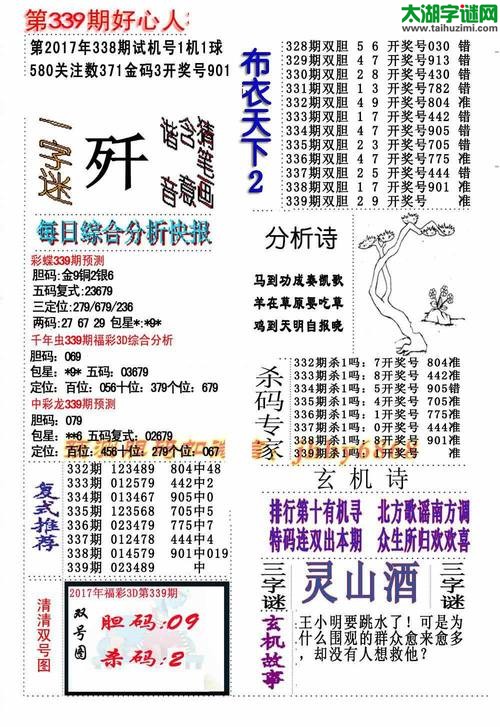 第339期好心人
太湖字谜网
www.taihuzimi.com
第2017年338期试机号1机1球
580关注数371金码3开奖号901
一字迷
歼
猜笔画
含意
猜音
每日综合分析快报
彩蝶339期预测
胆码：金9铜2银6
五码复式：23679
三定位：279/679/236
两码：27 67 29 包星*:*9*
千年虫339期福彩3D综合分析
胆码：069
包星：*9* 五码：03679
定位：百位：056十位：379个位：679
中彩龙339期预测
胆码：079
包星：**6 五码：02679
定位：百位：456十位：279个位：067
复式推荐
332期 123489 804中48
333期 012579 442中
334期 013467 905中0
335期 123568 705中5
336期 023479 775中7
337期 234567 775中77
338期 014579 901中019
339期 023489 中
清清双号图
2017年福彩3D第339期
双号图
胆码：09
杀码：2
布衣天下2
328期双胆 5 6 开奖号030 错
329期双胆 4 7 开奖号913 错
330期双胆 2 6 开奖号430 错
331期双胆 1 3 开奖号782 错
332期双胆 4 9 开奖号804 准
333期双胆 4 7 开奖号442 准
334期双胆 4 7 开奖号905 错
335期双胆 2 3 开奖号705 错
336期双胆 4 5 开奖号775 准
337期双胆 2 4 开奖号775 错
338期双胆 1 7 开奖号901 准
339期双胆 2 9 开奖号
分析诗
马到功成奏凯歌
羊在草原要吃草
鸡到天明自报晓
杀码专家
332期杀1吗：7开奖号 804准
333期杀1吗：8开奖号 442准
334期杀1吗：9开奖号 905错
335期杀1吗：4开奖号 705准
336期杀1吗：0开奖号 775准
玄机诗
排行第十有机寻 北方歌谣南方调
特码连双出本期 众生所归欢欢喜
三字谜
灵山酒
三字谜
玄机故事
王小明要跳水了！可是为
什么围观的群众愈来愈多
，却没有人想救他？